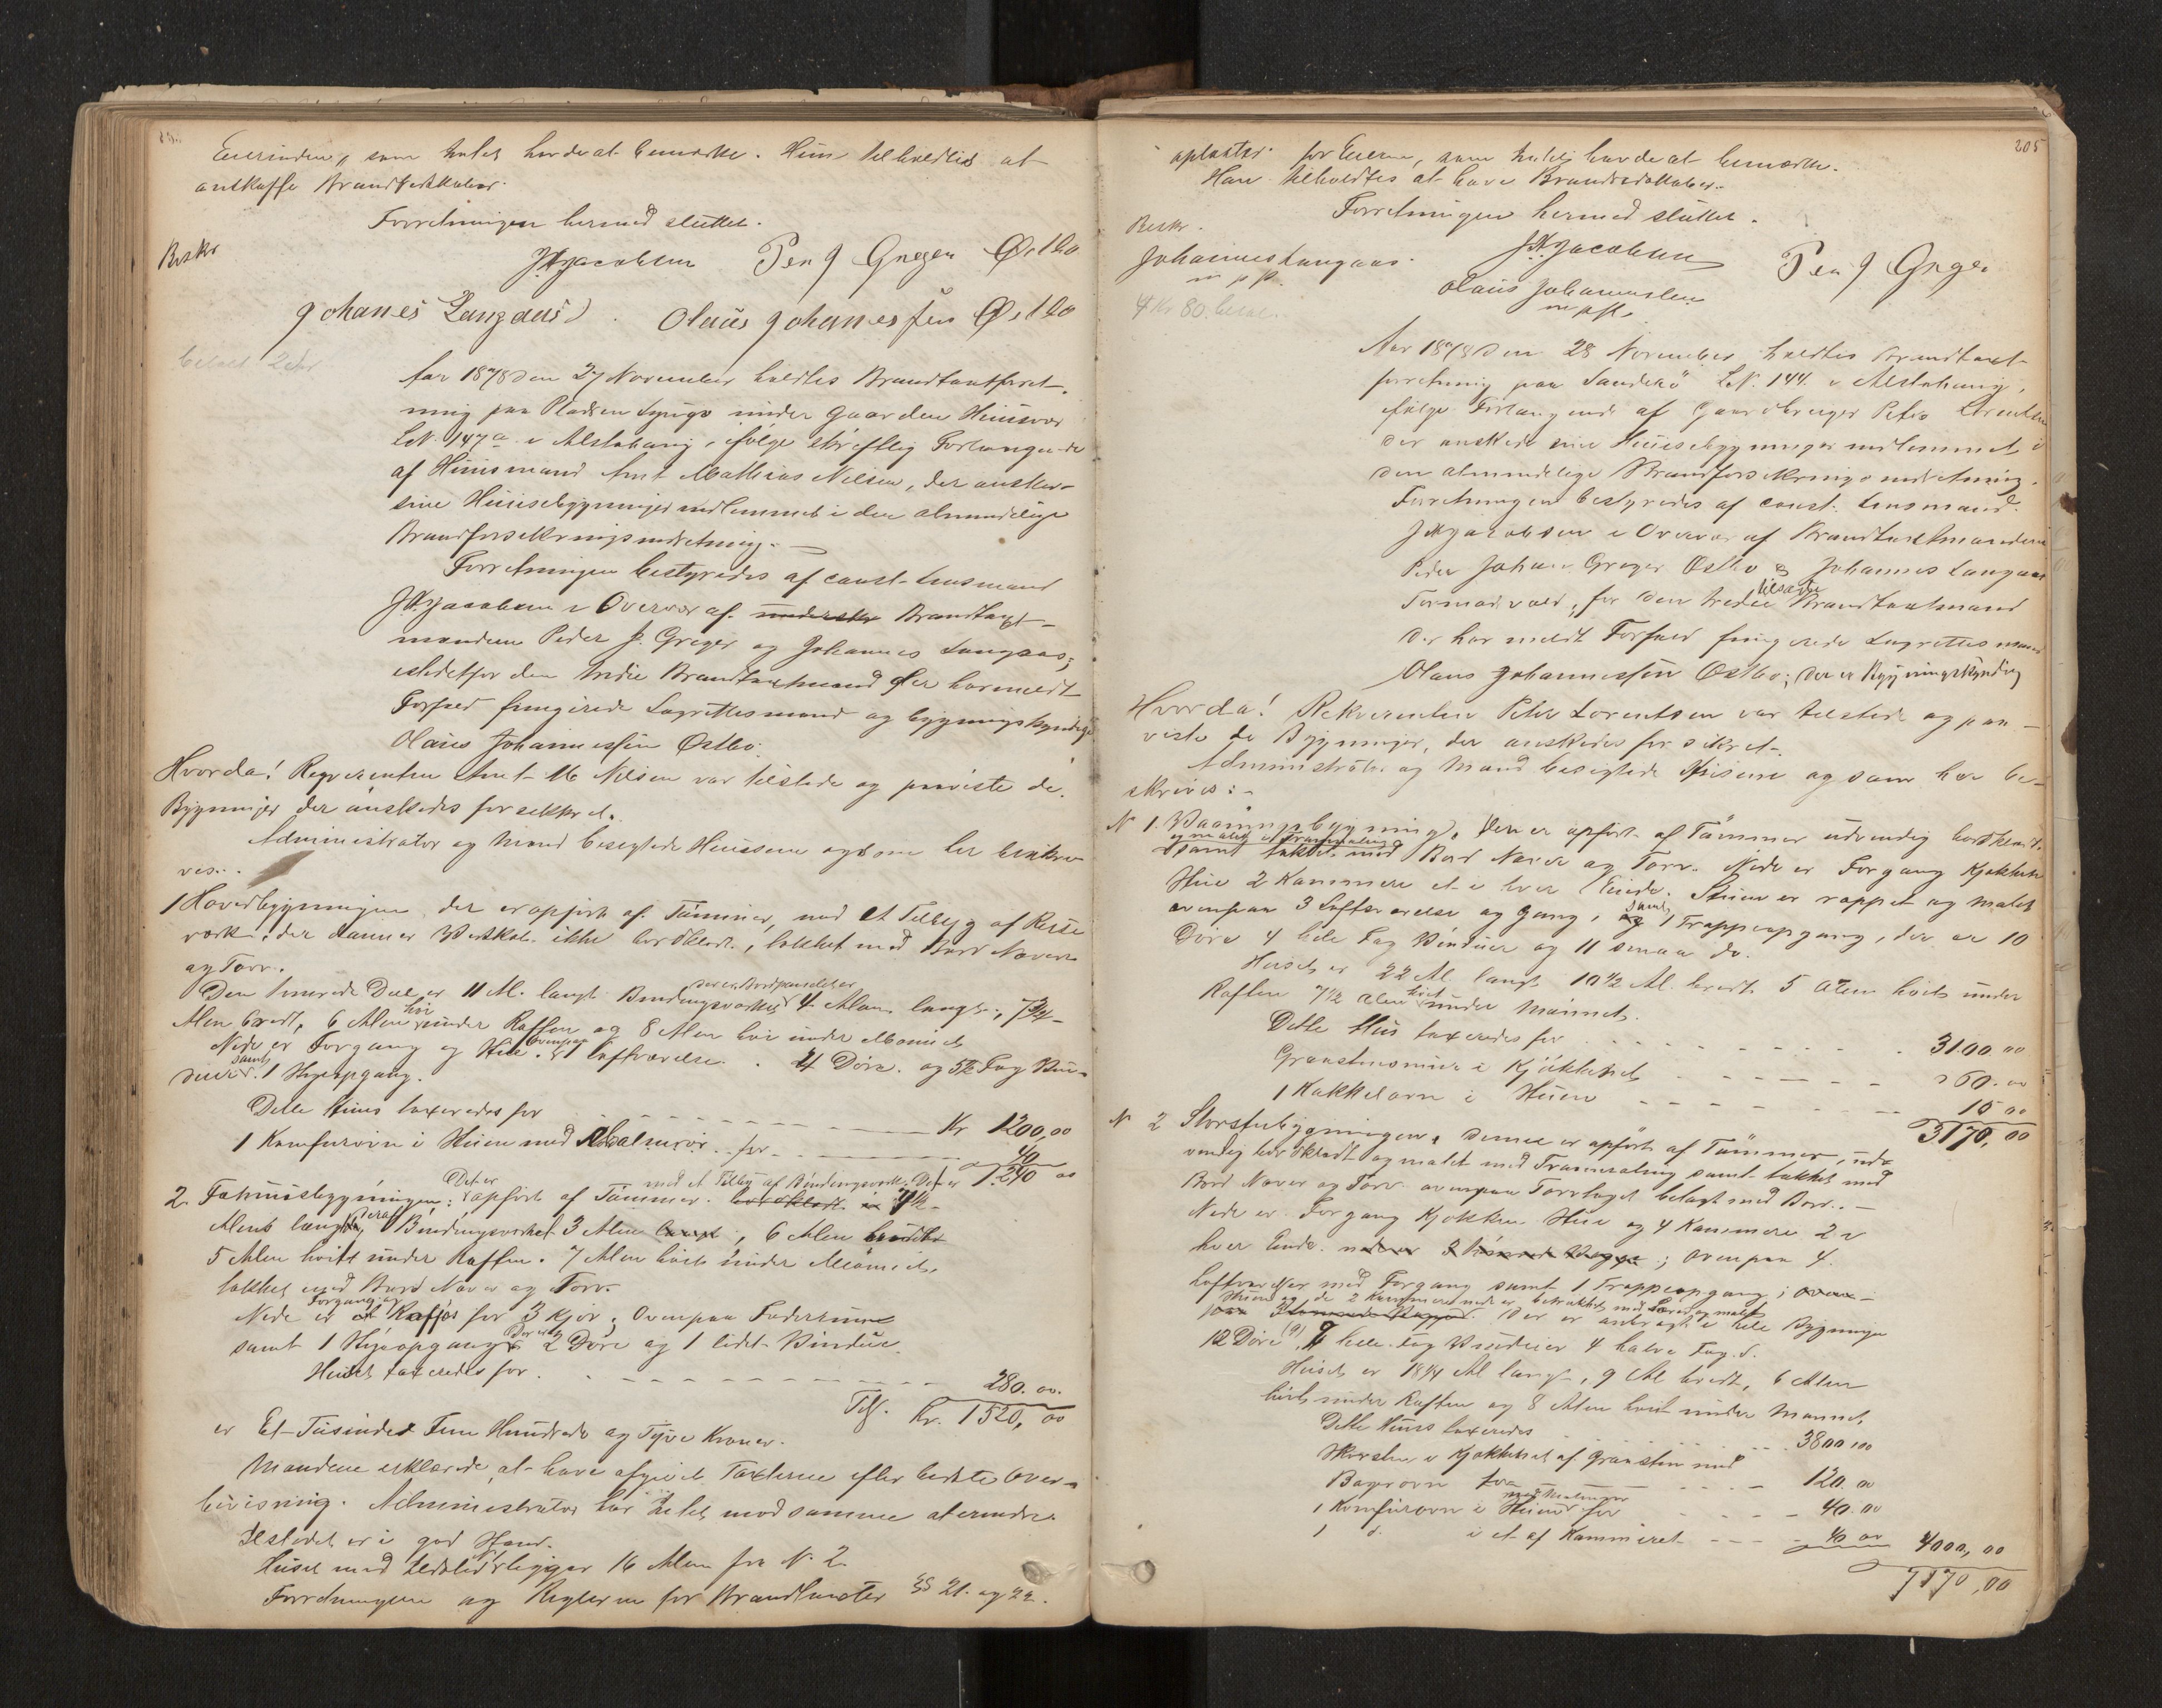 Eierinden, som Intet havde at bemærke. Hun tilholdtes at
anskaffe Brandredskaber.
Forretningen hermed sluttet.
Beskr
JAJacobsen Peder J Greger Østbo
Johanes Langaas Olaüs Johannesjen Østbo
betalt 2 Kr
Aar 1878 den 27 November holdtes Brandtaxtforret-
ning paa Pladsen under Gaarden Huusvær
LN. 147a i Alstahaug, ifølge skriftlig Forlangende
af Huusmand Amt Mathias Nilsen, der ønsker
sine Huusebygninger indlemmet i den almindelige
Brandforsikringsindretning.
Forretningen bestyredes af const. Lensmand
JAJacobsen i Overvær af Brandtaxt-
mændene Peder J. Greger og Johannes Langaas;
istedetfor den tredie Brandtaxtmand der har meldt
Forfald fungerede Lagrettesmand og bygningskyndige
Olaus Johannessen Østbo.
Hvorda! Reqvirenten Amt M Nilsen var tilstede og paaviste de
Bygninger der ønskedes forsikkret.
Administrator og Mænd besigtede Huusene og som her beskri-
ves:.
1 Hovedbygningen, der er opført af Tømmer, med et Tilbyg af Reis-
værk, der danner Vedskol. ikke bordklædt, tækket med Bord Næver
og Torv.
Den tømrede Deel er 11 Al. langt Bindingsværket der er Bordpanelet er 4 Alen langt, 7¾
Alen bredt, 6 Alen høi under Raften og 8 Alen høi under Mønnet
Nede er Forgang og Stue. ovenpaa 1 Loftværelse. 4 Døre. og 5½ Fag Vin-
duer. samt 1 Steenopgang.
Dette Huus taxeredes for Kr 1200,00
1 Komfurovn i Stuen med for 40
1.240 00
2. Fæhuusbygningen: Det er opført af Tømmer. med et Tilbyg af Bindingsværk. Det er
Alens længde, deraf Bindingsværket 3 Alen langt, 6 Alen bredt
5 Alen høit under Raften. 7 Alen høit under Mønnet.
tækket med Bord Næver og Torv.
Nede er Forgang og Fjøs for 3 Kjør; Ovenpaa Foderrum
samt 1 Høiopgang Der er 2 Døre og 1 lidet Vindue
Huset taxeredes for 280.00.
Tils. Kr. 1520,00
er Et Tusinde Fem Hundrede og Tyve Kroner.
Mændene erklærede at have afgivet Taxterne efter bedste Over-
bevisning. Administrator har Intet mod samme at erindre.
Ildstedet er i god Stand.
Huset med Ildsted ligger 16 Alen fra N. 2.
Forordningen og Reglerne for Brandtaxter §§ 21. og 22.
205
oplæstes for Eieren, som Intet havde at bemærke.
Han tilholdtes at have Brandredskaber.
Forretningen hermed sluttet.
Beskr.
Johannes Langaas
m p P.
JAJacobsen
Peder J Greger
Olaüs Johannesen
m p P.
4 Kr 80. betal.
Aar 1878 den 28 November holdtes Brandtaxt-
forretning paa Sandvær LN. 144. i Alstahaug,
ifølge Forlangende af Gaardbruger Peter Lorentsen
der ønskede sine Huusebygninger indlemmet i
den almindelige Brandforsikringsindretning.
Forretningen bestyredes af const. Lensmand
JAJacobsen i Overvær af Brandtaxtmændene
Peder Johan Greger Østbo og Johannes Langaas
for den tredie tilsatte Brandtaxtmand
der har meldt Forfald fungerede Lagrettesmand
Olaus Johannessen Østbo, der er Bygningskyndig
Hvorda! Rekvirenten Peter Lorentsen var tilstede og paa-
viste de Bygninger, der ønskedes forsikret.
Administrator og Mænd besigtede Husene og som her be-
skrives:.
N 1. Vaaningsbygning. Den er opført af Tømmer udvendig bordklædt
og malet
samt tækket med Bord Næver og Torv. Nede er Forgang Kjøkken
Stue 2 Kammere et i hver Ende. Stuen er rappet og malet
ovenpaa 3 Loftsværelser og Gang, samt 1 Trappeopgang, der er 10
Døre 4 hele Fag Vinduer og 11 smaa do.
Huset er 22 Al. langt 10½ Al. bredt 5 Alen høit under
Raften 7½ Alen høit under Mønnet.
Dette Hus taxeredes for 3100.00
Graastensmuur i Kjøkkenet 60.00
1 Kakkelovn i Stuen 10 00
3170,00
N 2 Storstuebygningen. Denne er opført af Tømmer, ud-
vendig bordklædt og malet med Tranmaling samt tækket med
Bord Næver og Torv. ovenpaa Torvtaget belagt med Bord.
Nede er Forgang Kjøkken Stue og 4 Kammere 2 i
hver Ende. ; ovenpaa 4
Loftværelser med Forgang samt 1 Trappeopgang;
Stuen og de 2 Kammere nede er betrukket med og malet
Der er anbragt i hele Bygningen
12 Døre, 9 hele Fag Vinduer 4 halve Fag d.
Huset er 18¼ Al langt, 9 Al bredt, 6 Alen
høit under Raften og 8 Alen høit under Mønnet,
Dette Huus taxeredes 3800,00
Skorsten i Kjøkkenet af Graasten med
Bagerovn 120.00
1 Komfurovn i Stuen for 40.00
1 d. i et af Kammeret 40 00
4000,00
7170,00